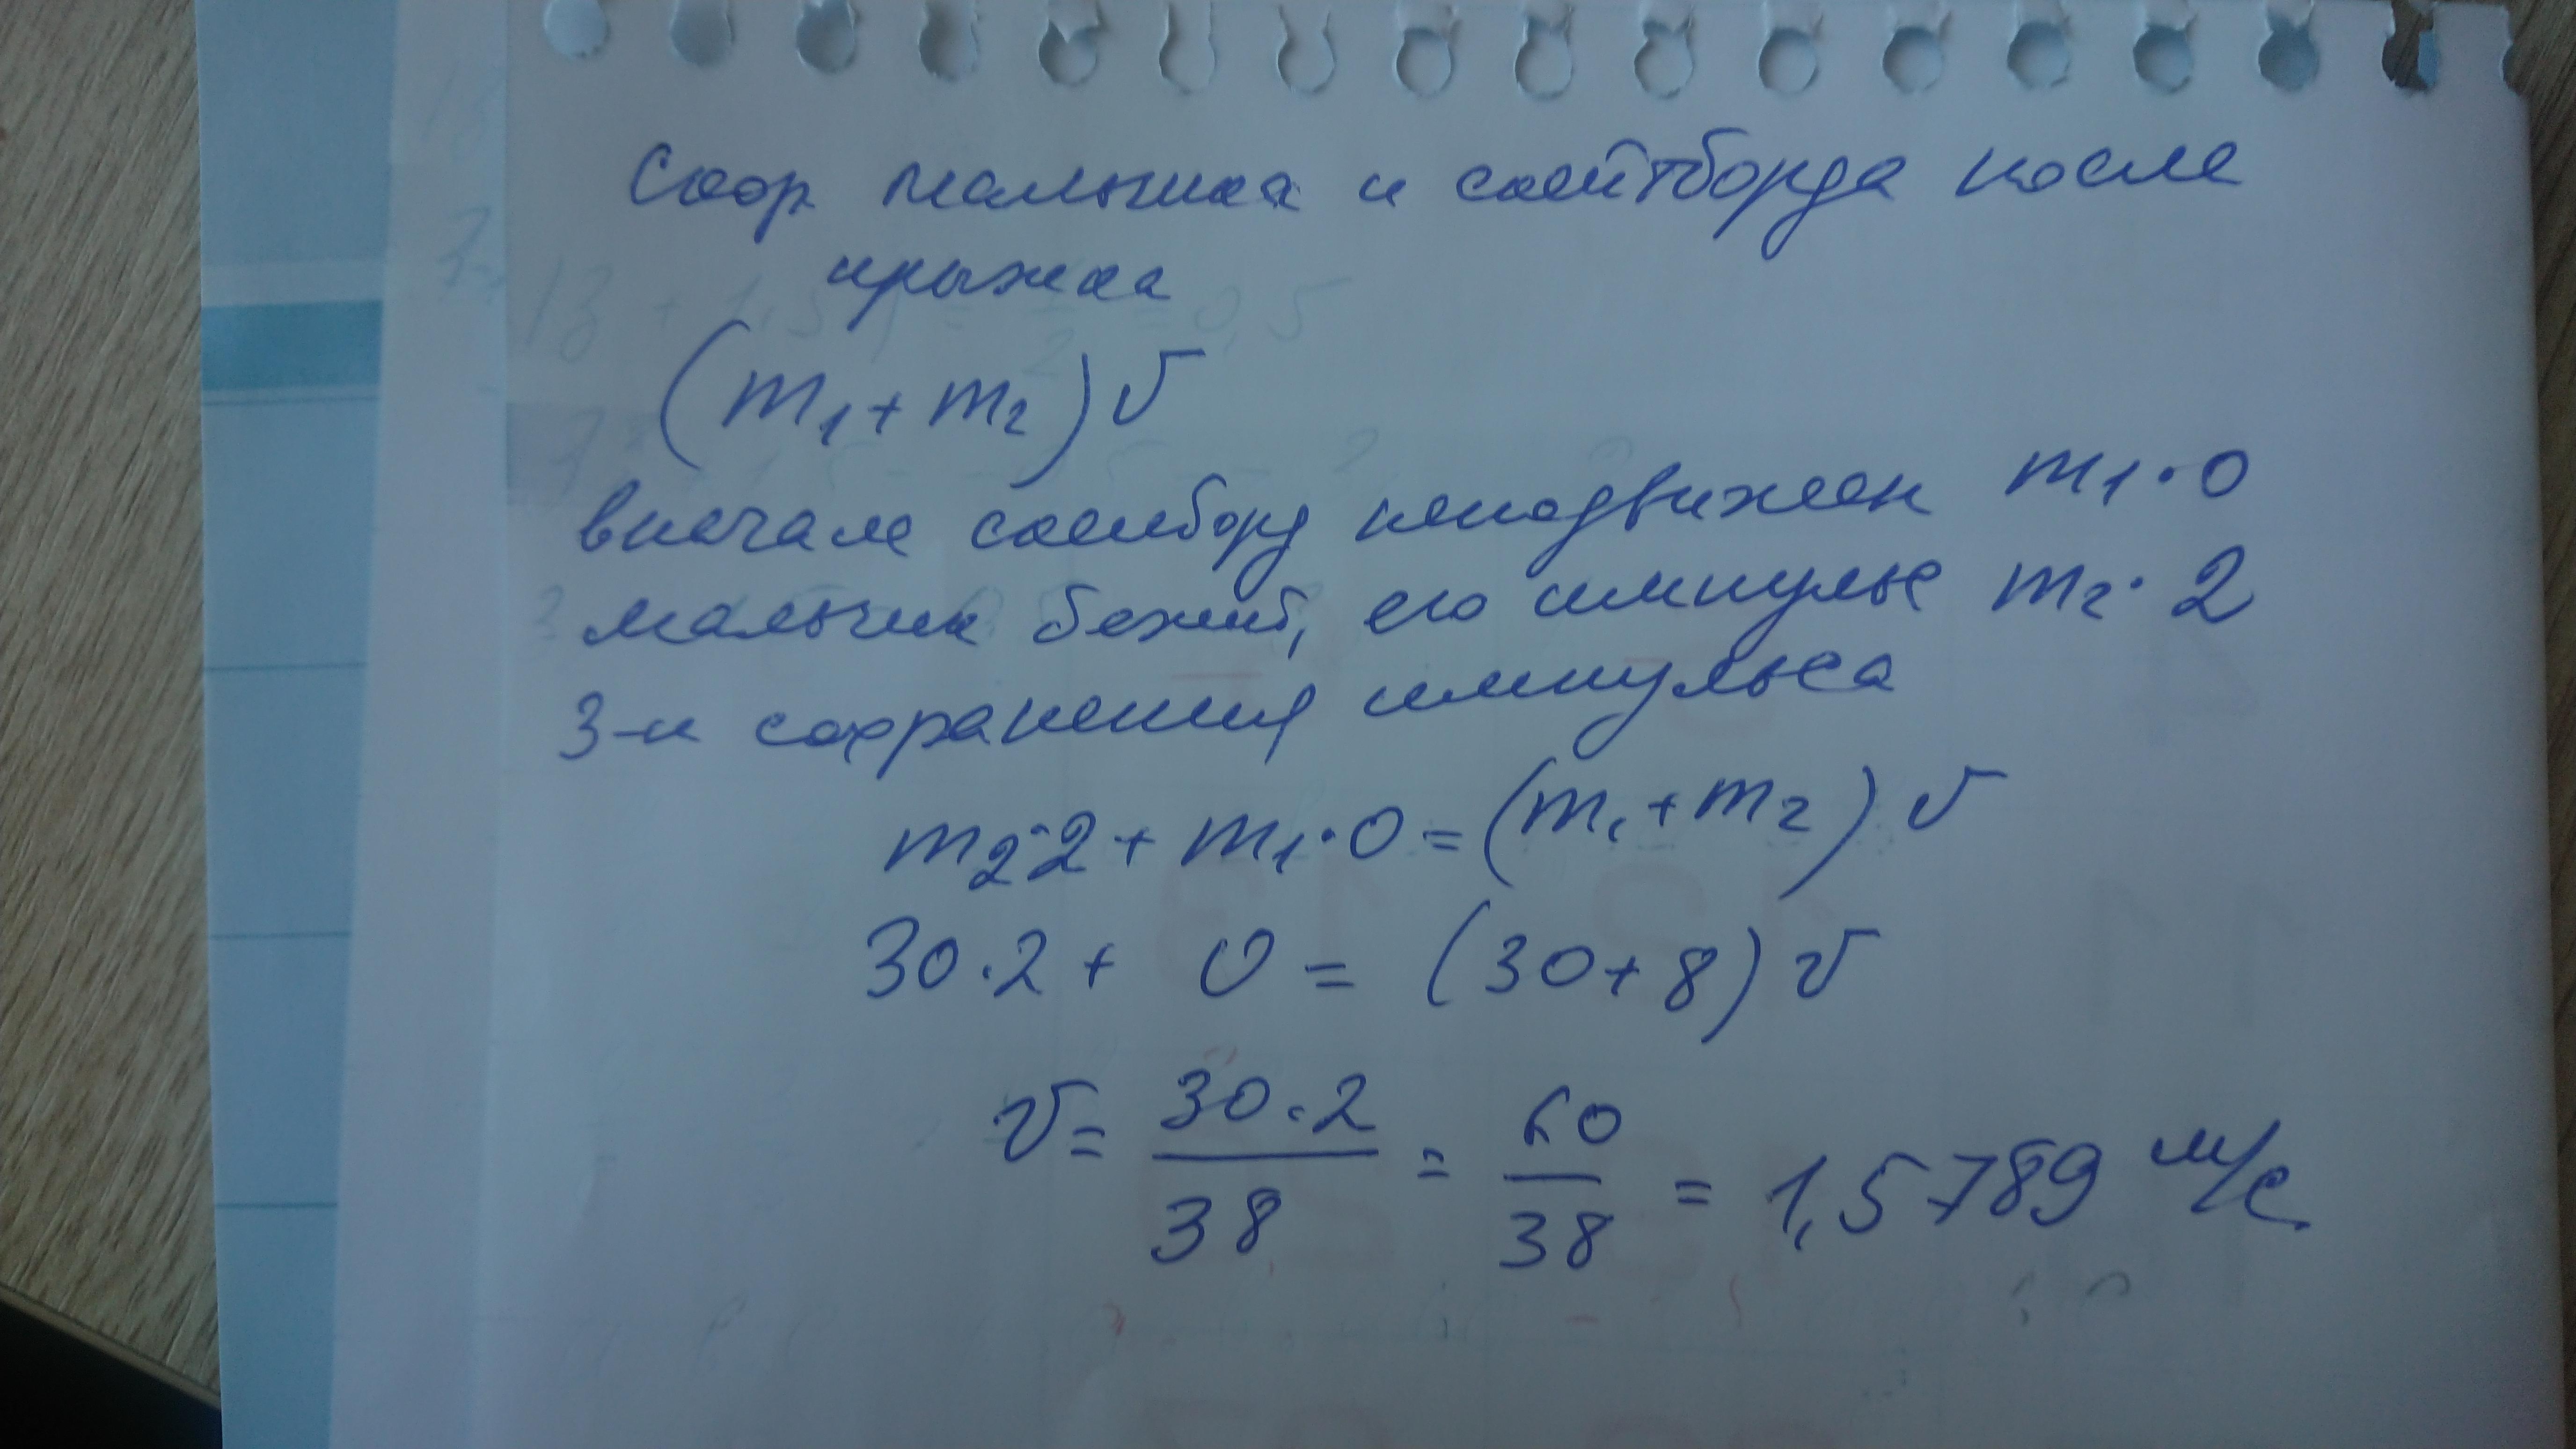 Скор мальчика и скейтборда после
прыжка
(m₁+m₂)v
вначале скейборд неподвижен m₁·0
мальчик бежит, его импульс m₂·2
З-н сохранения импульса
m₂·2+m₁·0=(m₁+m₂)v
30·2+ 0 = (30+8)v
v= 30·2/38 = 60/38 = 1,5789 м/с